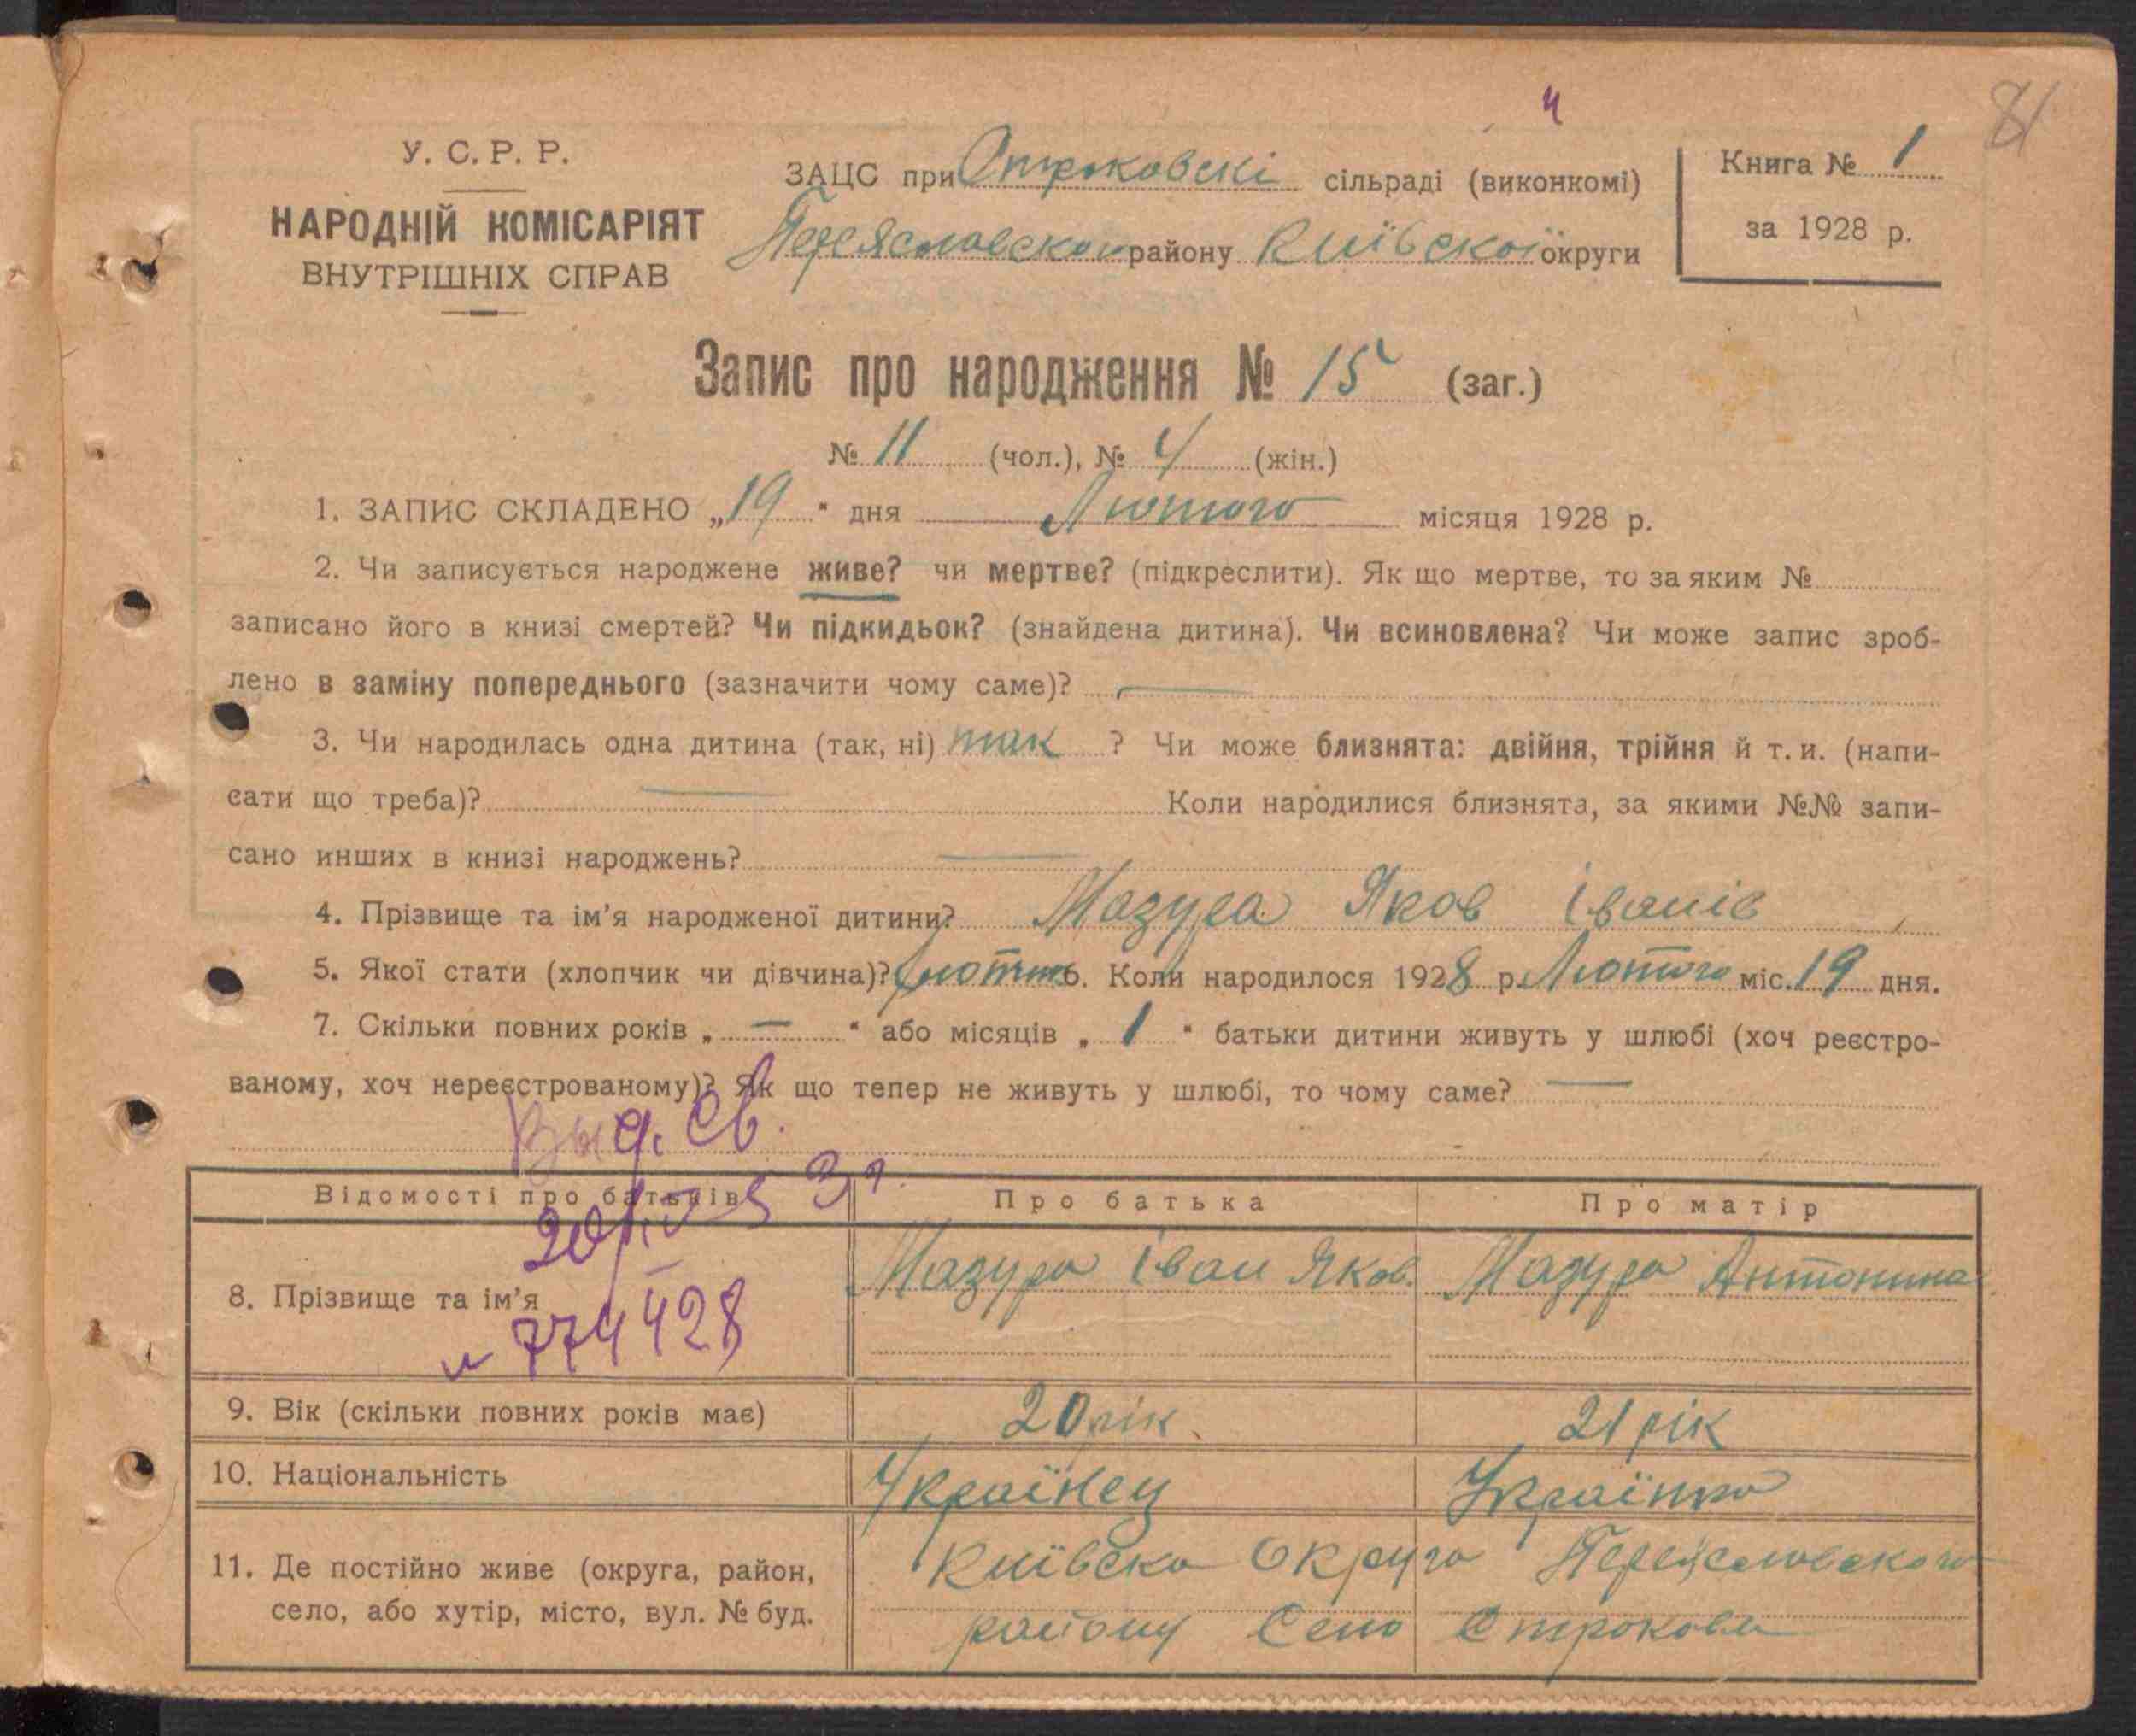 81
ч
У. С. Р. Р.
НАРОДНІЙ КОМІСАРІЯТ
ВНУТРІШНІХ СПРАВ
ЗАЦС при Строковскі сільраді (виконкомі)
Переяславскои району Київскої округи
Книга № 1
за 1928 р.
Запис про народження № 15 (заг.)
№ 11 (чол.), № 4 (жін.)
1. ЗАПИС СКЛАДЕНО „19“ дня Лютого місяця 1928 р.
2. Чи записується народжене живе? чи мертве? (підкреслити). Як що мертве, то за яким №
записано його в книзі смертей? Чи підкидьок? (знайдена дитина). Чи всиновлена? Чи може запис зроб-
лено в заміну попереднього (зазначити чому саме)? —
3. Чи народилась одна дитина (так, ні) так ? Чи може близнята: двійня, трійня й т. и. (напи-
сати що треба)? — Коли народилися близнята, за якими №№ запи-
сано инших в книзі народжень? —
4. Прізвище та ім'я народженої дитини? Мазура Яков Іванів
5. Якої стати (хлопчик чи дівчина)? 6. Коли народилося 1928 р. Лютого міс. 19 дня.
7. Скільки повних років „ — “ або місяців „ 1 “ батьки дитини живуть у шлюбі (хоч реєстро-
ваному, хоч нереєстрованому)? Як що тепер не живуть у шлюбі, то чому саме? —
Выд. Св.
Відомості про батьків
Про батька
Про матір
8. Прізвище та ім'я
Мазура Іван Яков.
Мазура Антонина
№ 774428
9. Вік (скільки повних років має)
20 рік.
21 рік
10. Національність
Українец
Українка
11. Де постійно живе (округа, район,
село, або хутір, місто, вул. № буд.
Київска округа Переяславского
району Село Строкова